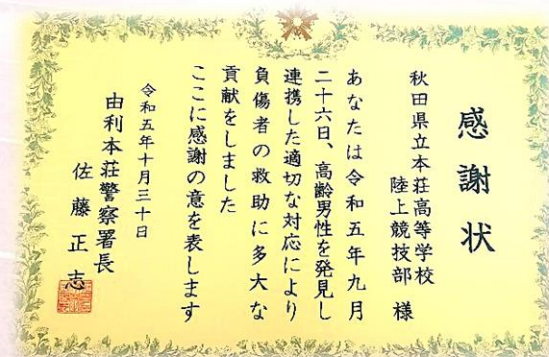 感謝状
秋田県立本荘高等学校
陸上競技部 様
あなたは令和五年九月
二十六日、高齢男性を発見し
連携した適切な対応により
負傷者の救助に多大な
貢献をしました
ここに感謝の意を表します
令和五年十月三十日
由利本荘警察署長
佐藤正志